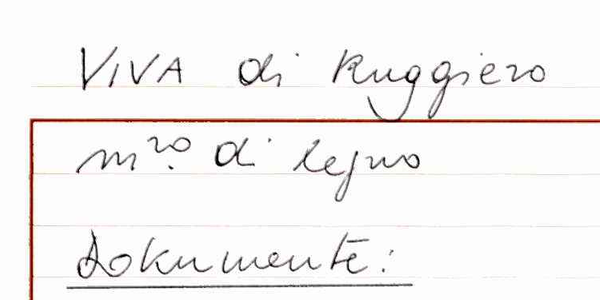 VIVA di Ruggiero
m.ro di legno
Dokumente: